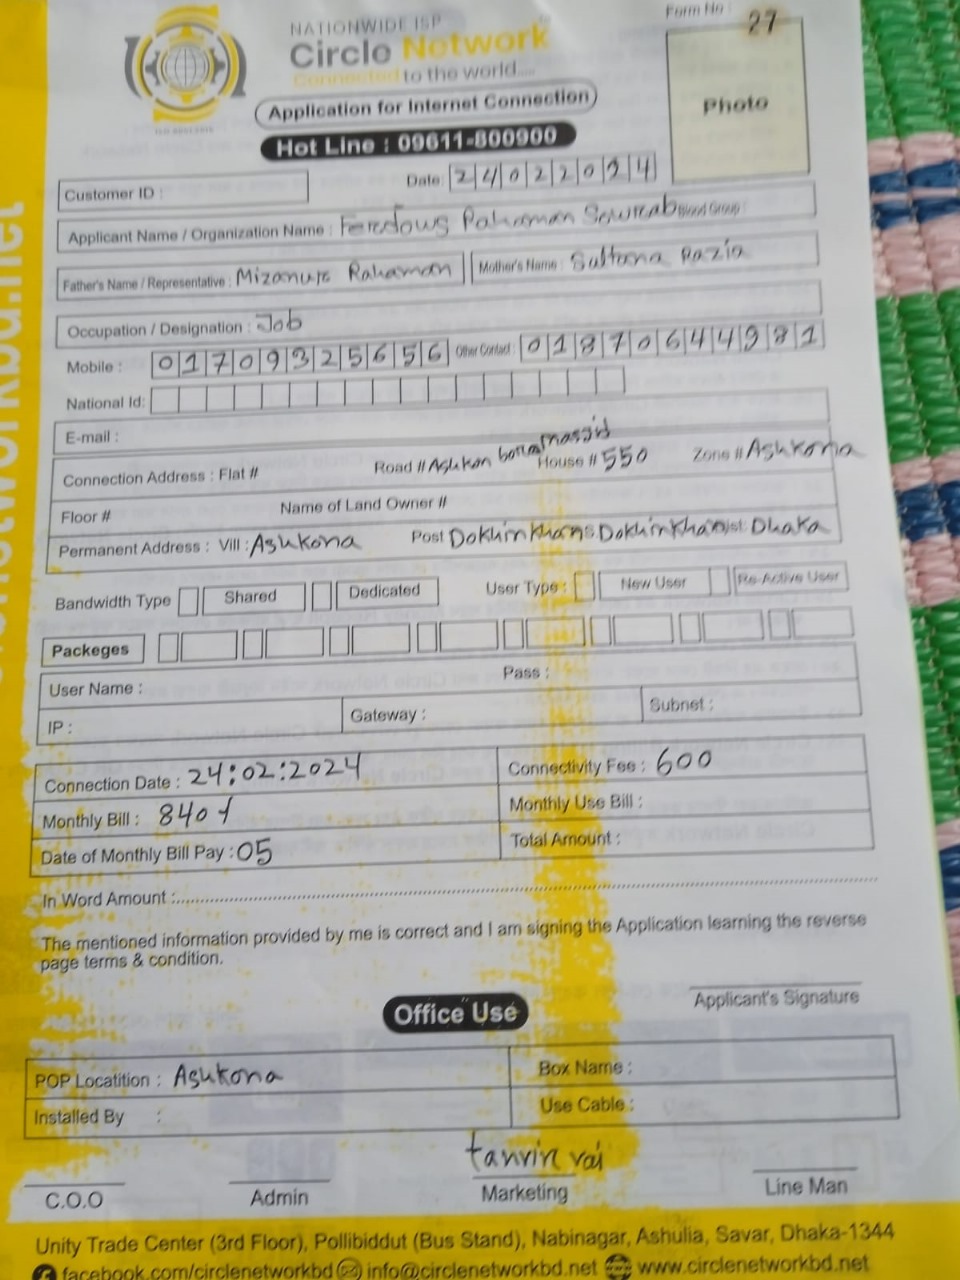 Form No : 27
NATIONWIDE ISP
Circle Network
Connected to the world.....
Application for Internet Connection
Photo
Hot Line : 09611-800900
Date: 24022024
Customer ID :
Applicant Name / Organization Name : Ferdows Rahaman Sowrab Blood Group :
Father's Name / Representative : Mizanur Rahaman Mother's Name : Sultana Razia
Occupation / Designation : Job
Mobile : 01709325656 Other Contact : 01870644981
National Id:
E-mail :
Connection Address : Flat # Road # Ashkon bona masjid House # 550 Zone # Ashkona
Floor # Name of Land Owner #
Permanent Address : Vill : Ashkona Post Dokhinkhan Dokhinkhan Dist: Dhaka
Bandwidth Type Shared Dedicated User Type : New User Re-Active User
Packeges
User Name : Pass :
IP : Gateway : Subnet :
Connection Date : 24:02:2024 Connectivity Fee : 600
Monthly Bill : 840/ Monthly Use Bill :
Date of Monthly Bill Pay : 05 Total Amount :
In Word Amount :
The mentioned information provided by me is correct and I am signing the Application learning the reverse
page terms & condition.
Applicant's Signature
Office Use
POP Locatition : Ashkona Box Name :
Installed By : Use Cable :
tanvin vai
C.O.O Admin Marketing Line Man
Unity Trade Center (3rd Floor), Pollibiddut (Bus Stand), Nabinagar, Ashulia, Savar, Dhaka-1344
facebook.com/circlenetworkbd info@circlenetworkbd.net www.circlenetworkbd.net